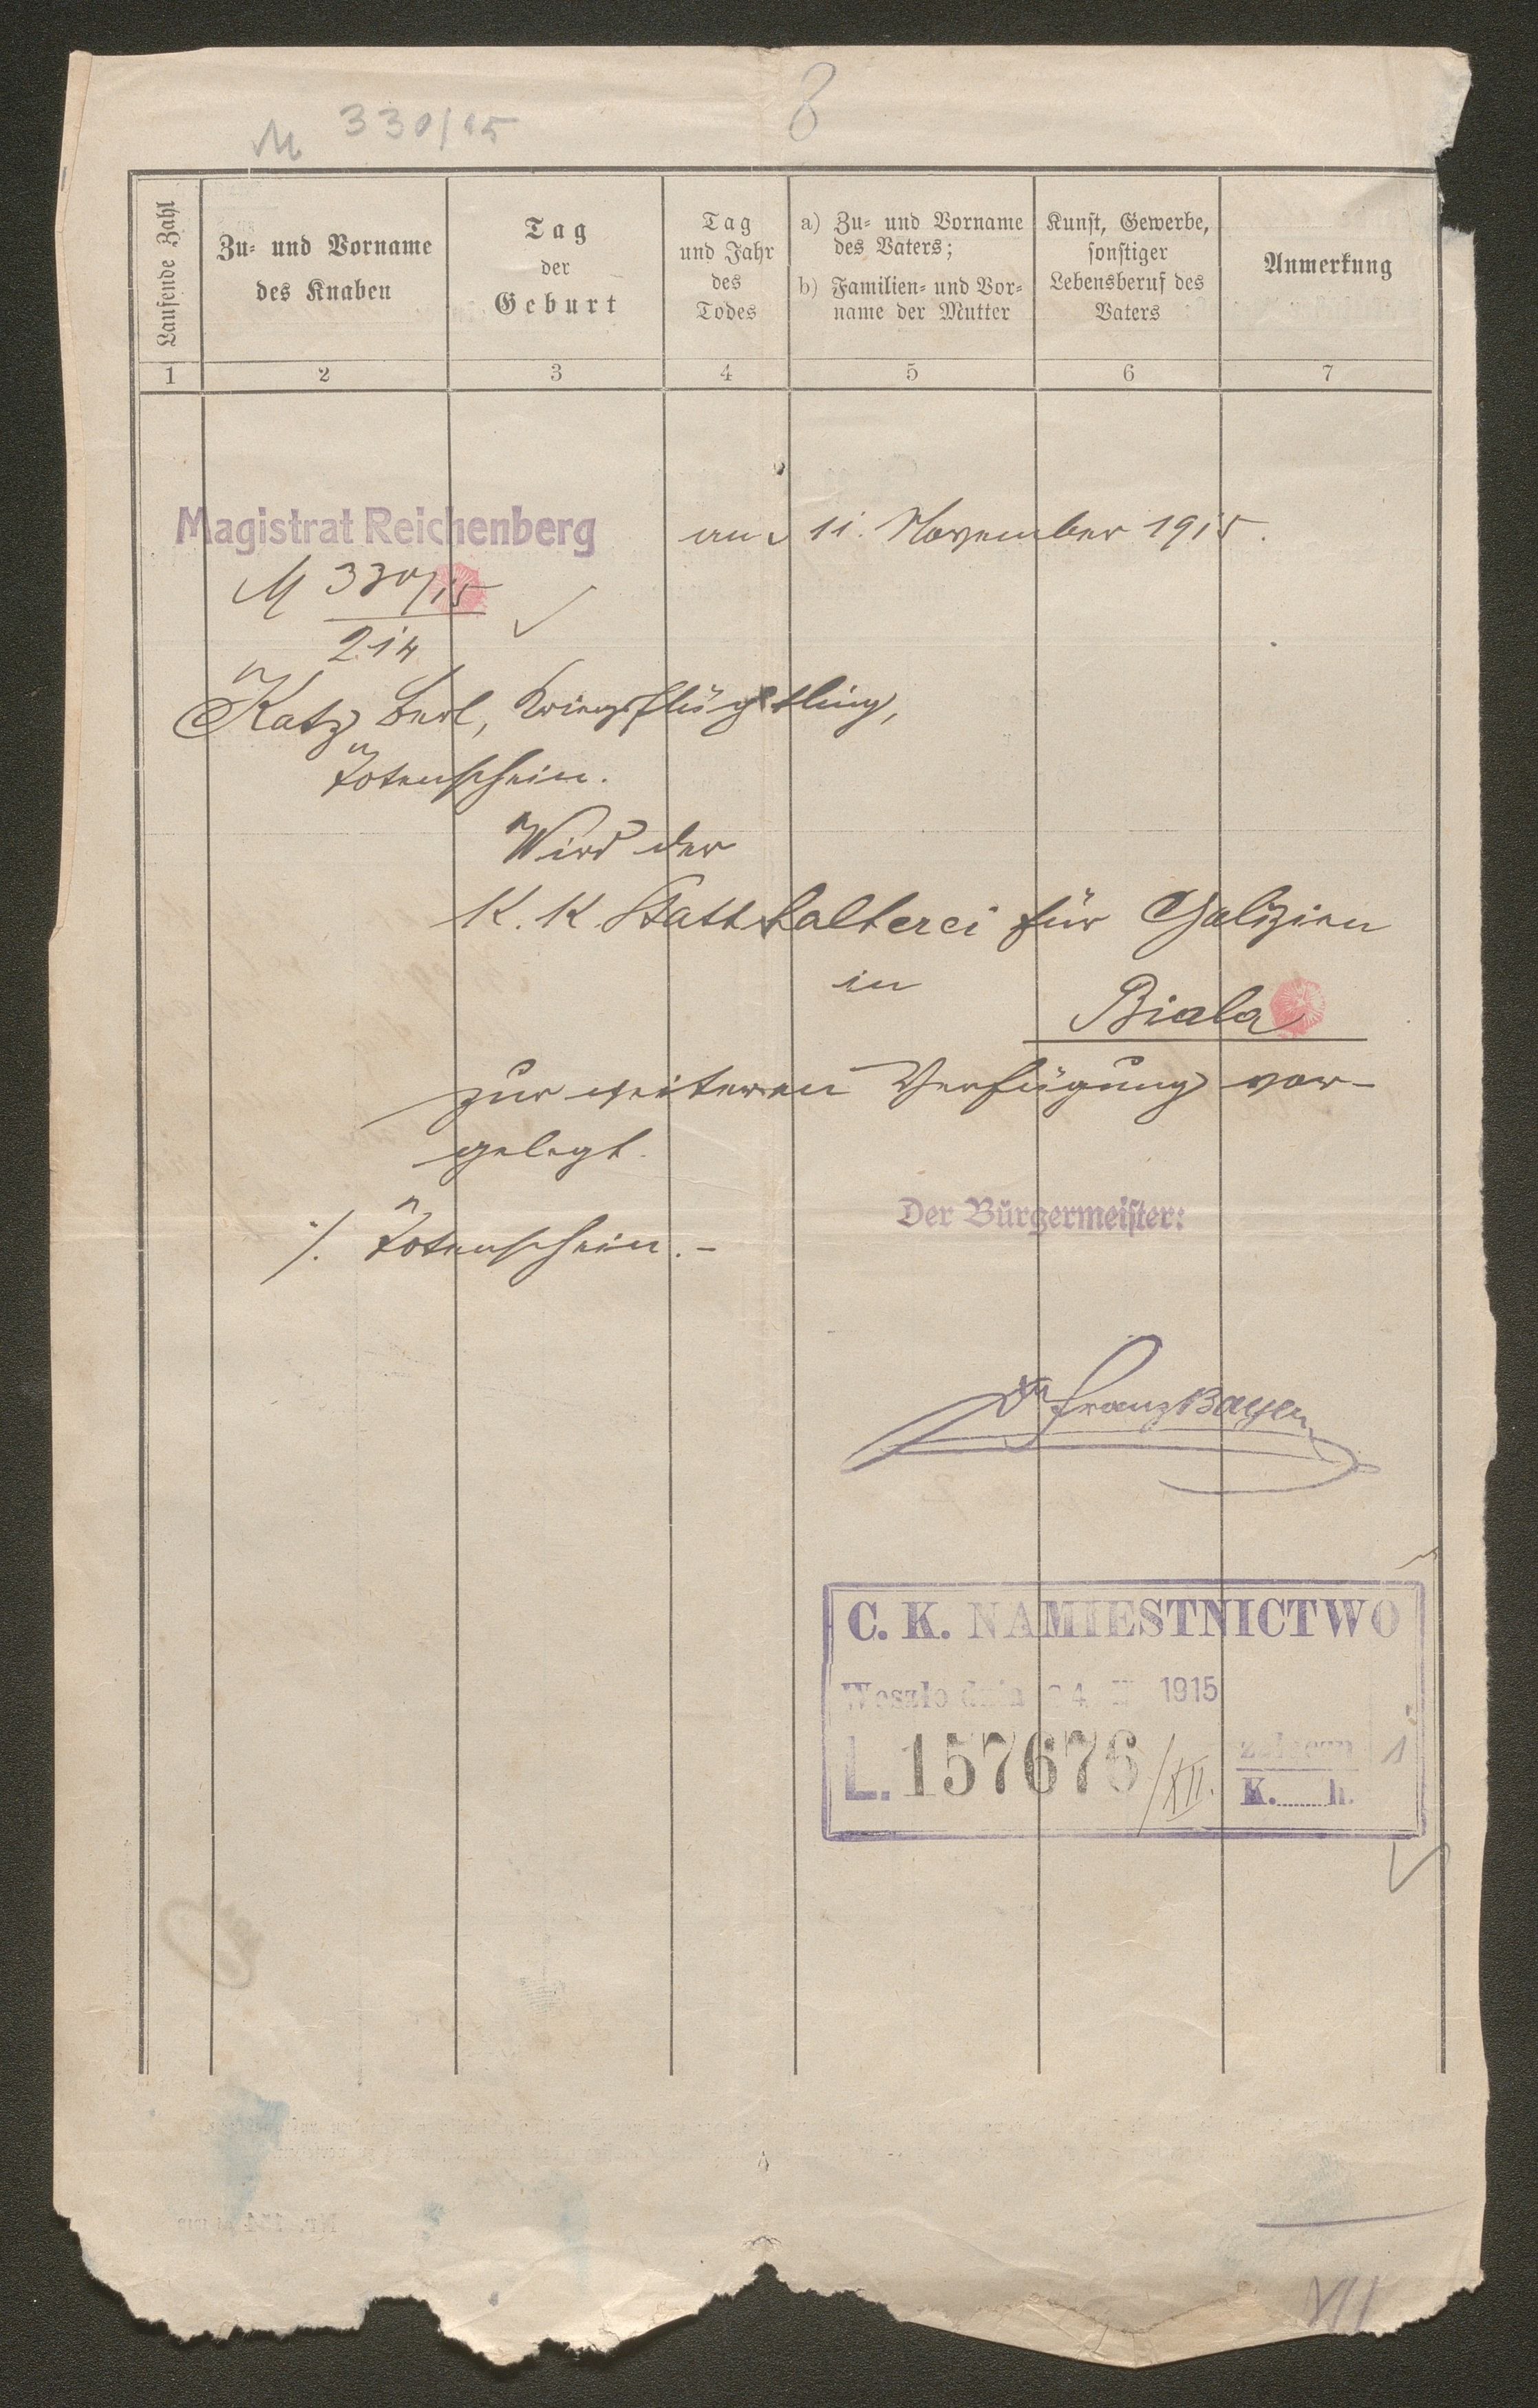 M 330/15
8
Laufende Zahl
Zu- und Vorname
des Knaben
Tag
der
Geburt
Tag
und Jahr
des
Todes
a) Zu- und Vorname
des Vaters;
b) Familien- und Vor-
name der Mutter
Kunst, Gewerbe,
sonstiger
Lebensberuf des
Vaters
Anmerkung
1 2 3 4 5 6 7
Magistrat Reichenberg am 11. November 1915.
M 330/15
214
Katz Berl, Kriegsflüchtling,
Totenschein.
Wird der
K. K. Statthalterei für Galizien
in
Biala
zur weiteren Verfügung vor-
gelegt.
Der Bürgermeister:
·/. Totenschein.-
Dr Franz Bayer
C. K. NAMIESTNICTWO
Weszło dnia 1915
L. 157676/XII. załączn 1
K. h.
XII